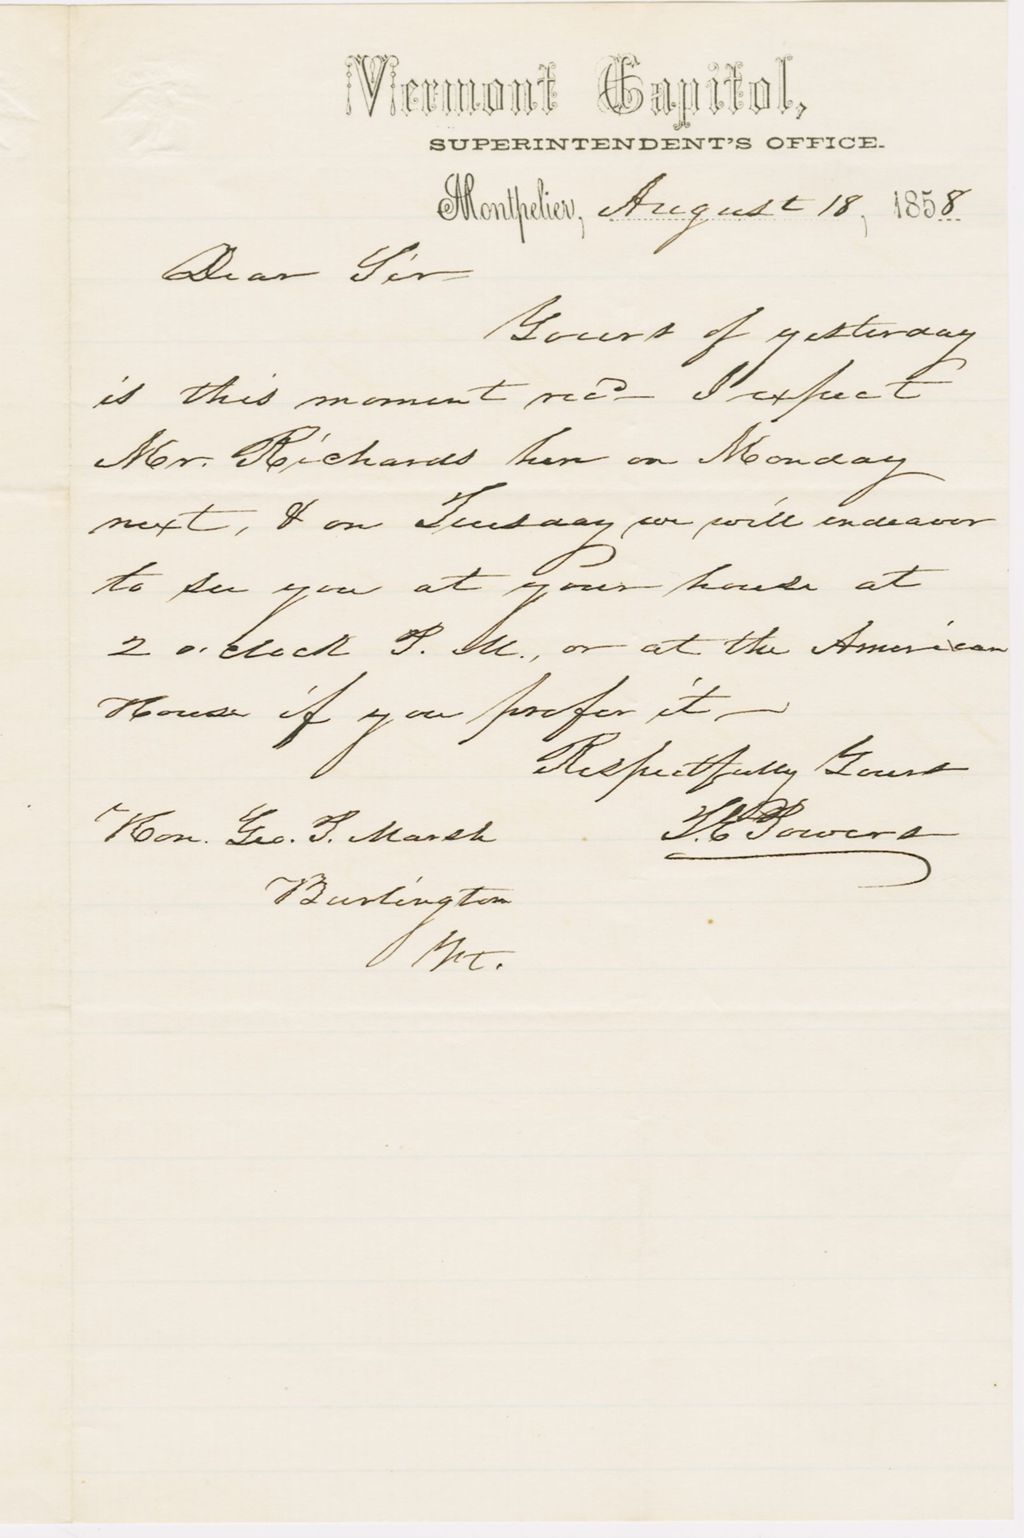 Vermont Capitol,
SUPERINTENDENT'S OFFICE.
Montpelier, August 18, 1858
Dear Sir
Yours of yesterday
is this moment recd— I expect
Mr. Richards here on Monday
next, & on Tuesday we will endeavor
to see you at your house at
2 o'clock P. M., or at the American
House if you prefer it—
Respectfully Yours
T. E. Powers
Hon. Geo. P. Marsh
Burlington
Vt.